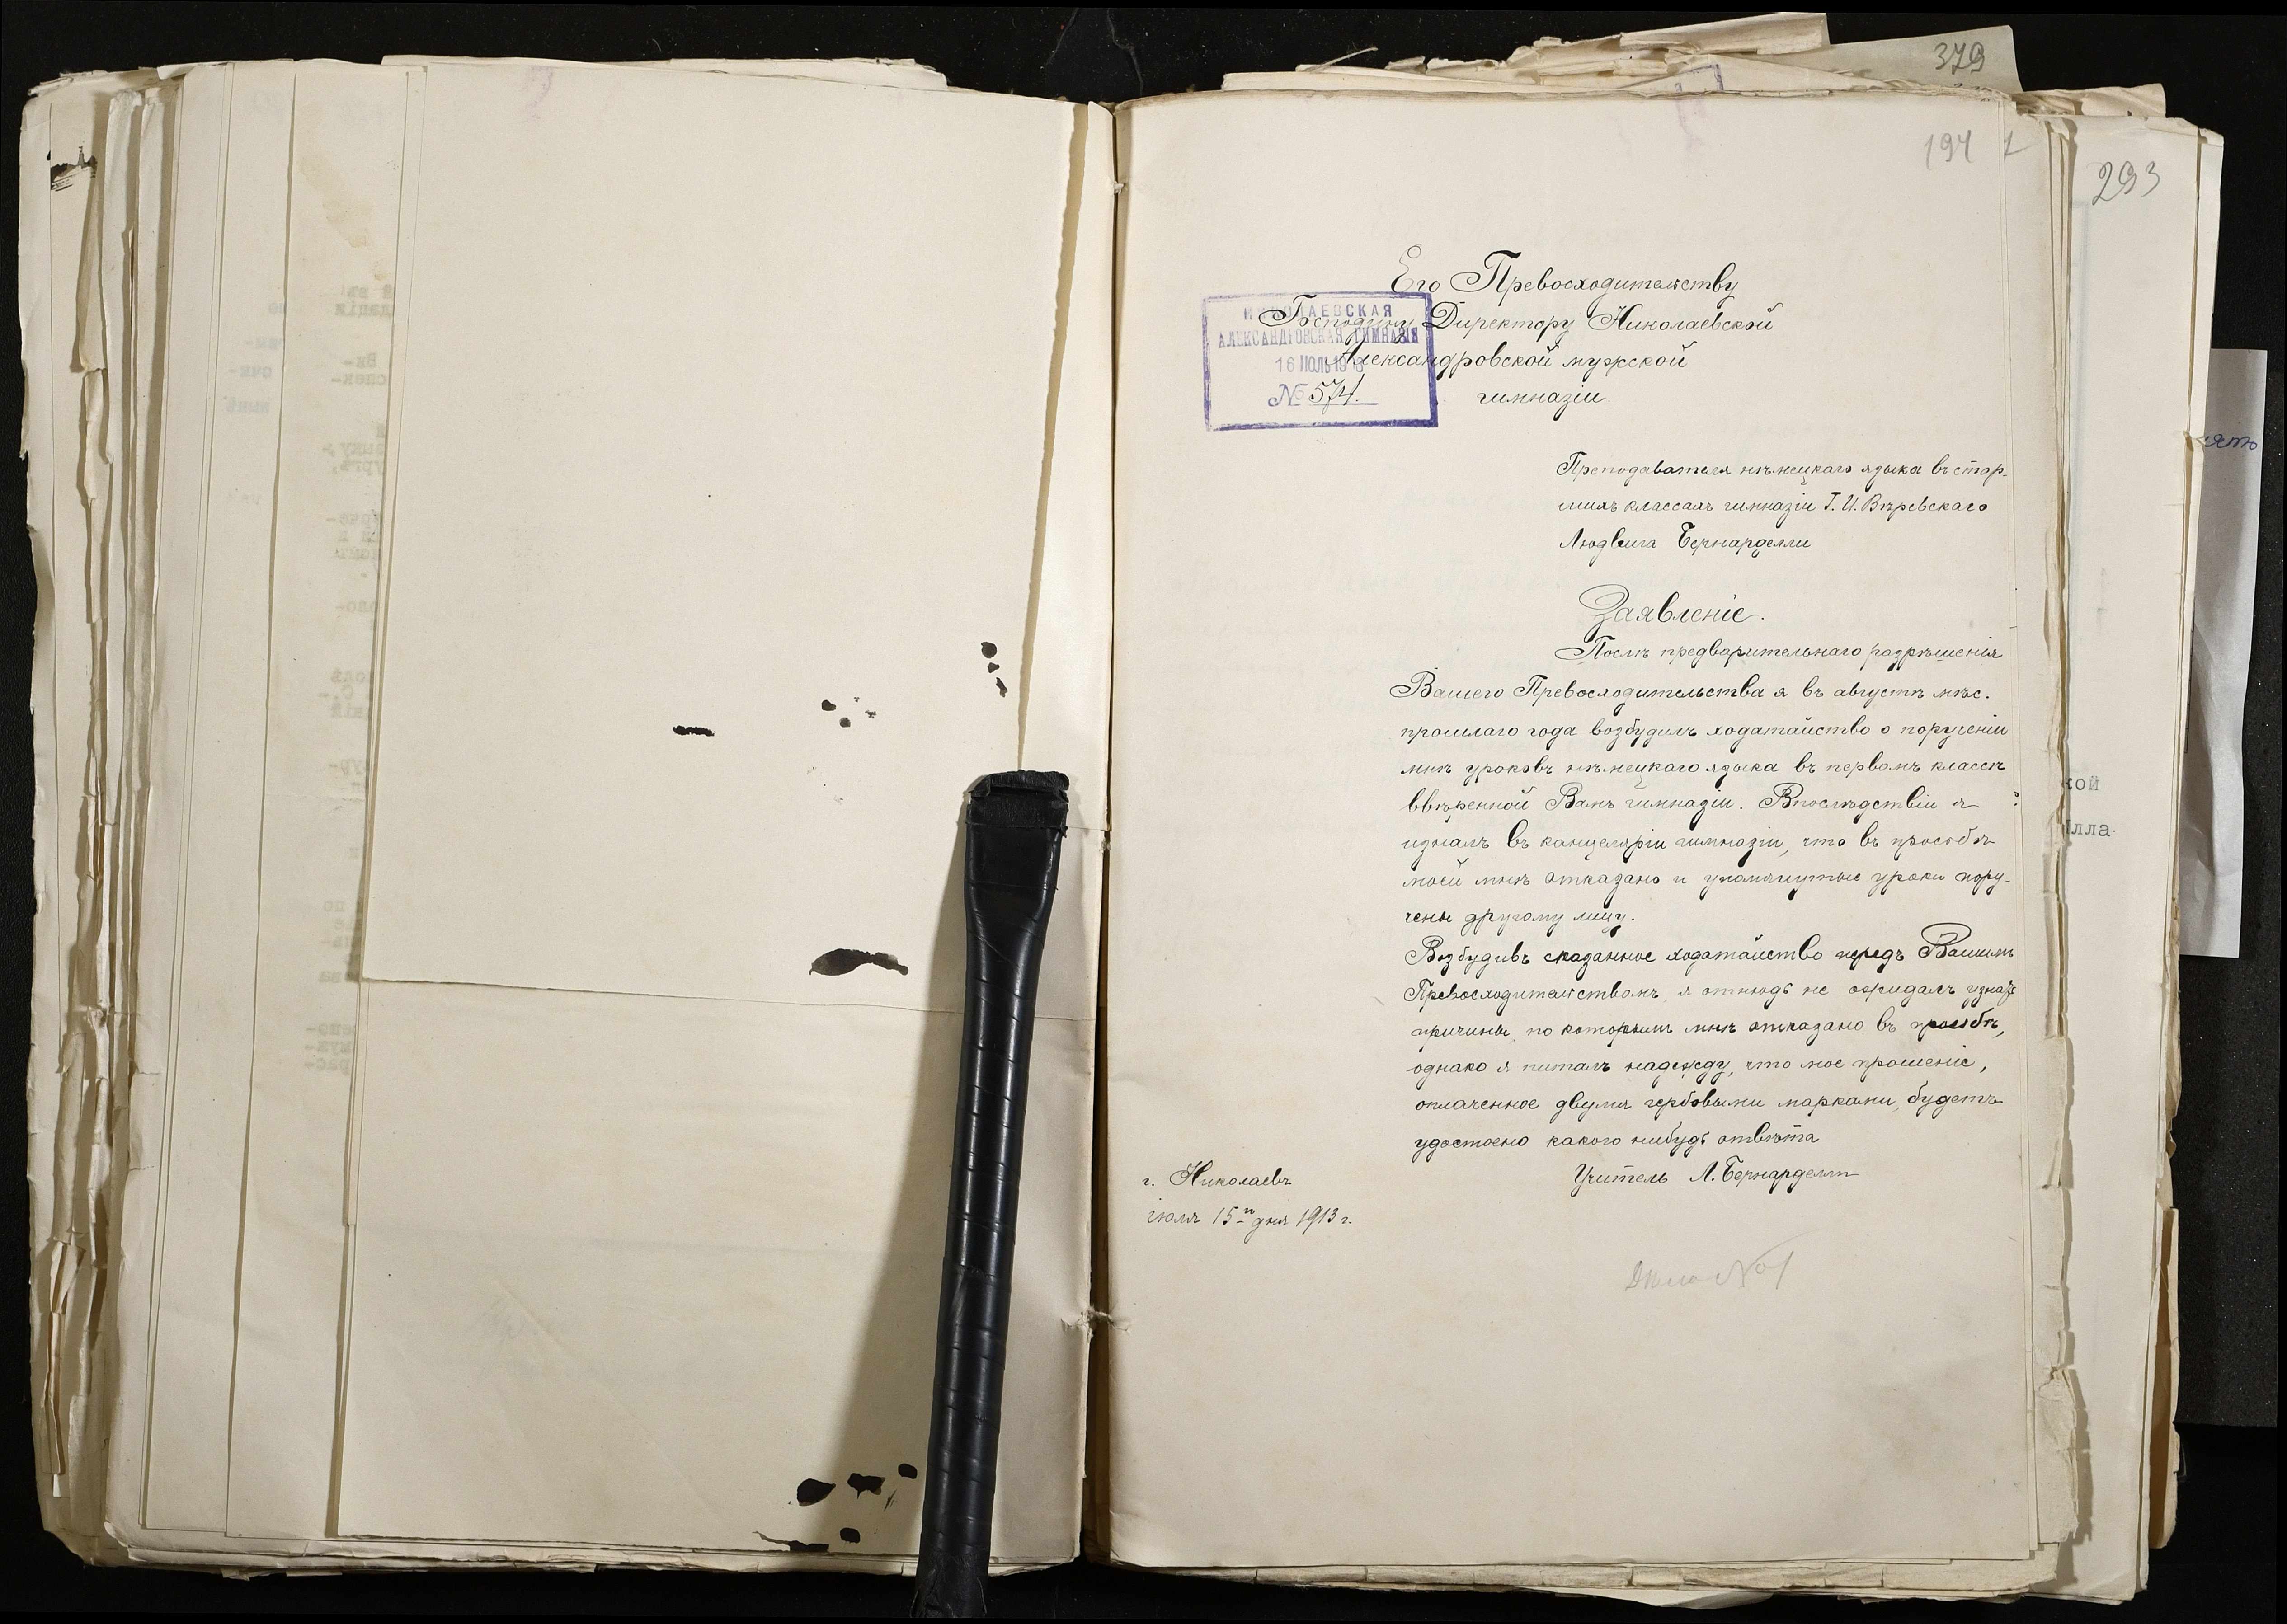 379
194
293
Его Превосходительству
Господину Директору Николаевской
Александровской мужской
гимназіи.
НИКОЛАЕВСКАЯ
АЛЕКСАНДРОВСКАЯ ГИМНАЗІЯ
16 ИЮЛЬ 1913
№ 574.
Преподавателя нѣмецкаго языка въ стар-
шихъ классахъ гимназіи Г. И. Вѣревскаго
Людвига Бернарделли
Заявленіе.
Послѣ предварительнаго разрѣшенія
Вашего Превосходительства я въ августѣ мѣс.
прошлаго года возбудилъ ходатайство о порученіи
мнѣ уроковъ нѣмецкаго языка въ первомъ классѣ
ввѣренной Вамъ гимназіи. Впослѣдствіи я
узналъ въ канцеляріи гимназіи, что въ просьбѣ
моей мнѣ отказано и упомянутые уроки пору-
чены другому лицу.
Возбудивъ сказанное ходатайство передъ Вашимъ
Превосходительствомъ, я отнюдь не ожидалъ узнать
причины, по которымъ мнѣ отказано въ просьбѣ,
однако я питалъ надежду, что мое прошеніе,
оплаченное двумя гербовыми марками, будетъ
удостоено какого нибудь отвѣта
Учитель Л. Бернарделли
г. Николаевъ
іюля 15-го дня 1913 г.
Дѣло №1
кой
лла-
ять